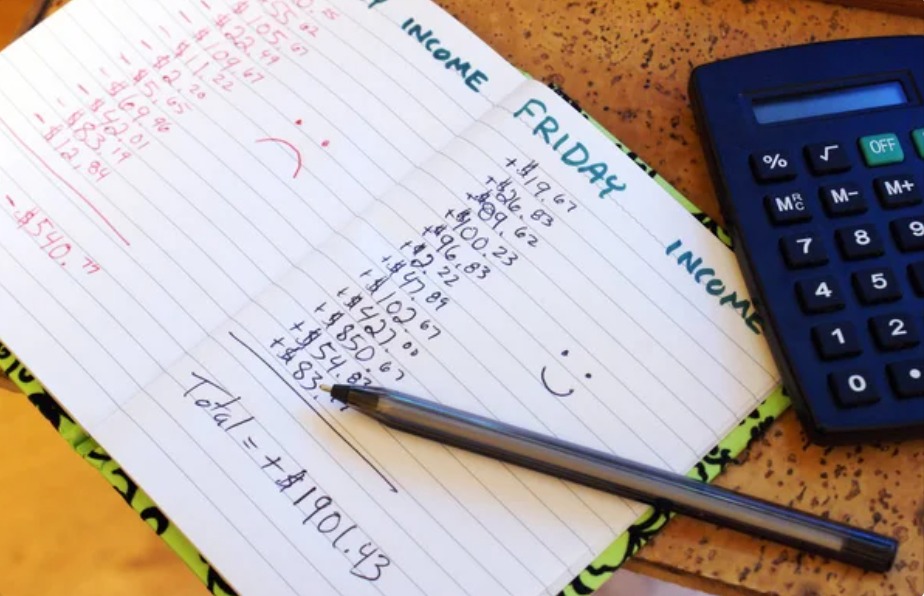 - $105.67
- $22.49
- $109.67
- $11.22
- $2.20
- $5.65
- $69.96
- $42.01
- $83.19
- $12.84
- $540.77
INCOME
FRIDAY
INCOME
+$19.67
+$26.83
+$89.62
+$100.23
+$96.83
+$2.22
+$47.89
+$102.67
+$427.00
+$850.67
+$54.83
+$83.
Total = +$1901.43
% √ OFF
MRC M- M+
7 8 9
4 5
1 2
0 •